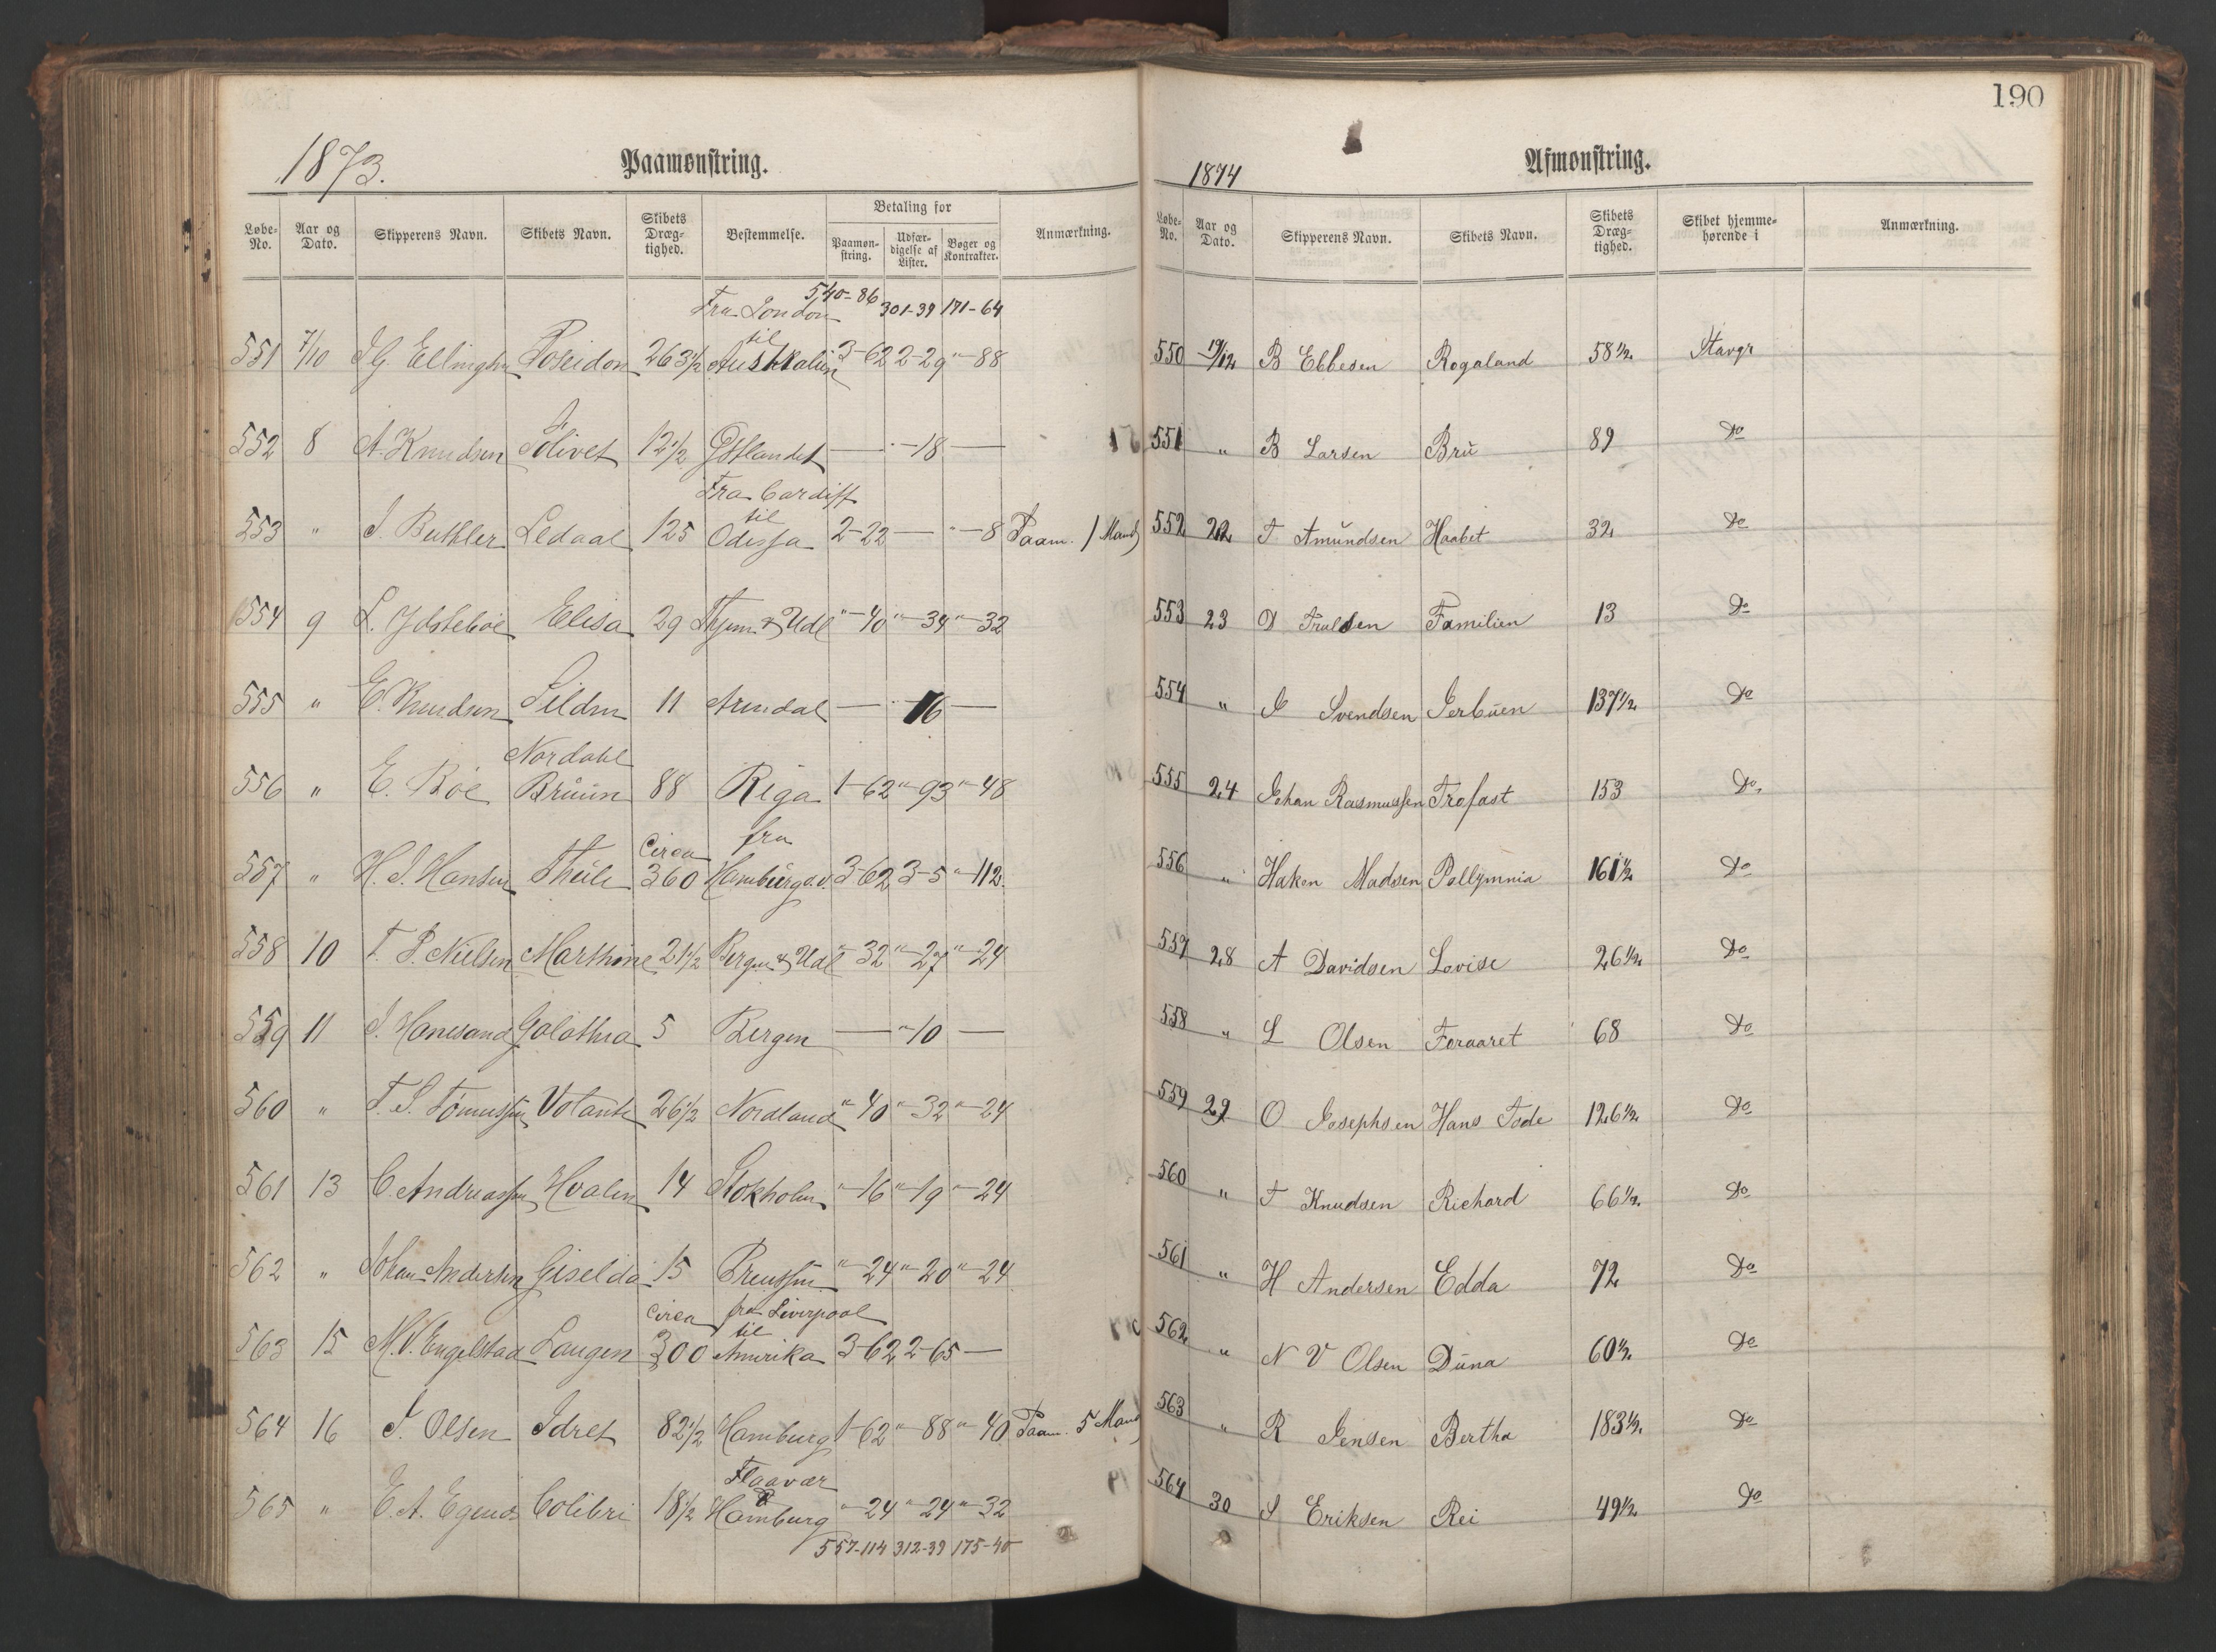 190
1873.
Paamønstring.
Løbe-No. Aar og Dato. Skipperens Navn. Skibets Navn. Skibets Dræg-tighed. Bestemmelse. Betaling for Paamøn-string. Udfær-digelse af Lister. Bøger og Kontrakter. Anmærkning.
540-86 301-39 171-64
Fra London
til
551 7/10 J G. Ellingsen Poseidon 263 1/2 Australien 3-62 2-29 "-88
552 8 A. Knudsen Solivet 12 1/2 Østlandet — "-18 —
Fra Cardiff
til
553 " J. Buthler Ledaal 125 Odessa 2-22 — "-8 Paam. 1 Mand
554 9 L. Ydstebøe Elisa 29 Hjem & Udl "-40 "-34 "-32
555 " E. Knudsen Silden 11 Arendal — "-16 —
Nordahl
556 " E. Bøe Brüun 88 Riga 1-62 "-93 "-48
Circa fra
557 " H. J. Hansen Thule 360 Hamburg 3-62 3-5 "-112
558 10 T. P. Nielsen Marthine 21 1/2 Bergen & Udl "-32 "-27 "-24
559 11 J. Hanesand Galathea 5 Bergen — "-10 —
560 " T. S. Tønnessen Votante 26 1/2 Nordland "-40 "-32 "-24
561 13 C. Andreassen Hvalen 14 Stokholm "-16 "-19 "-24
562 " Johan Andersen Giselda 15 Preussen "-24 "-20 "-24
Circa fra Liverpool
til
563 15 M. V. Engelstad Laugen 300 Amerika 3-62 2-65 —
564 16 J. Olsen Idret 82 1/2 Hamburg 1-62 "-88 "-40 Paam. 5 Mand
Flaavær
&
565 " E. A. Egenes Colibri 18 1/2 Hamburg "-24 "-24 "-32
557-114 312-39 175-40
1874
Afmønstring.
Løbe-No. Aar og Dato. Skipperens Navn. Skibets Navn. Skibets Dræg-tighed. Skibet hjemme-hørende i Anmærkning.
550 19/12 B Ebbesen Rogaland 58 1/2 Stavgr
551 " B Larsen Brü 89 Do
552 22 T Amundsen Haabet 32 Do
553 23 D Trulsen Familien 13 Do
554 " J Svendsen Jerbuen 137 1/2 Do
555 24 Johan Rasmussen Trofast 153 Do
556 " Haken Madsen Pollymnia 161 1/2 Do
557 28 A Davidsen Lovise 26 1/2 Do
558 " L Olsen Foraaret 68 Do
559 29 O Josephsen Hans Tode 126 1/2 Do
560 " T Knudsen Richard 66 1/2 Do
561 " H Andersen Edda 72 Do
562 " N V Olsen Düna 60 1/2 Do
563 " R Jensen Bertha 183 1/2 Do
564 30 S Eriksen Rei 49 1/2 Do